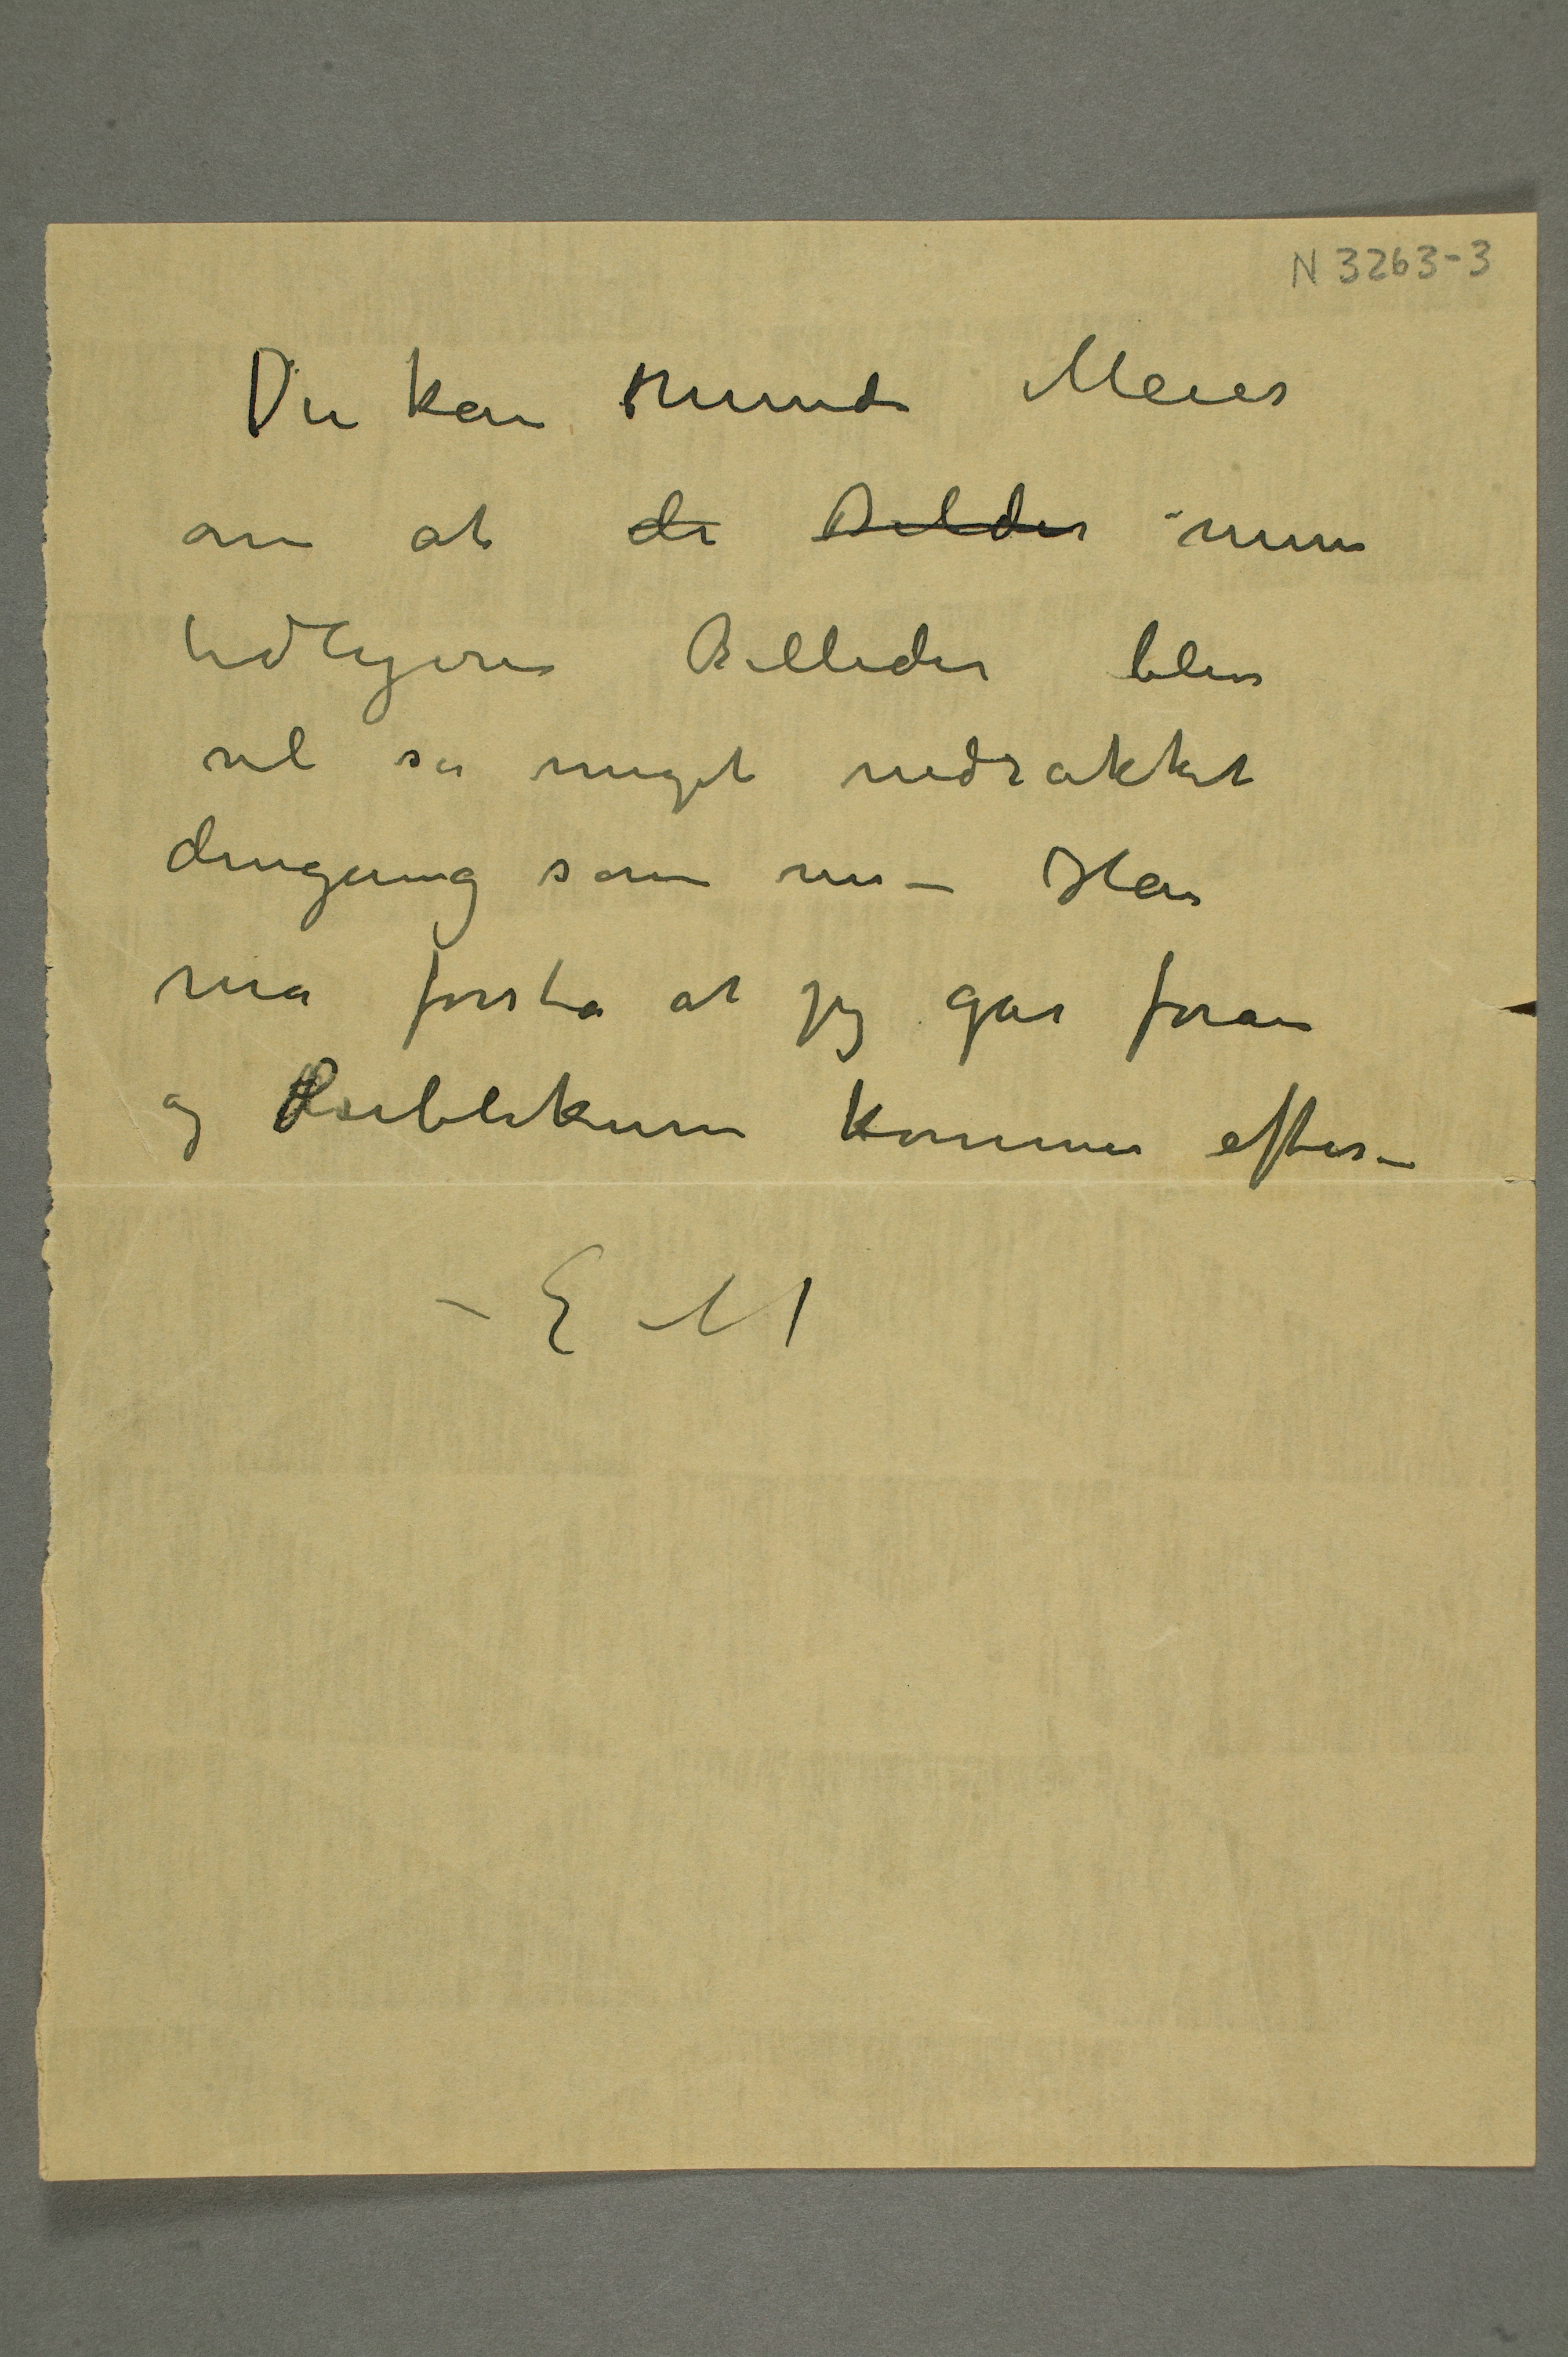 N 3263-3
Du kan minde Meier
om at de Belder mine
tidligere Billeder blev
vel så meget nedrakket
dengang som nu – Han
må forstå at jeg går foran
og Publikum kommer efter –
– E M